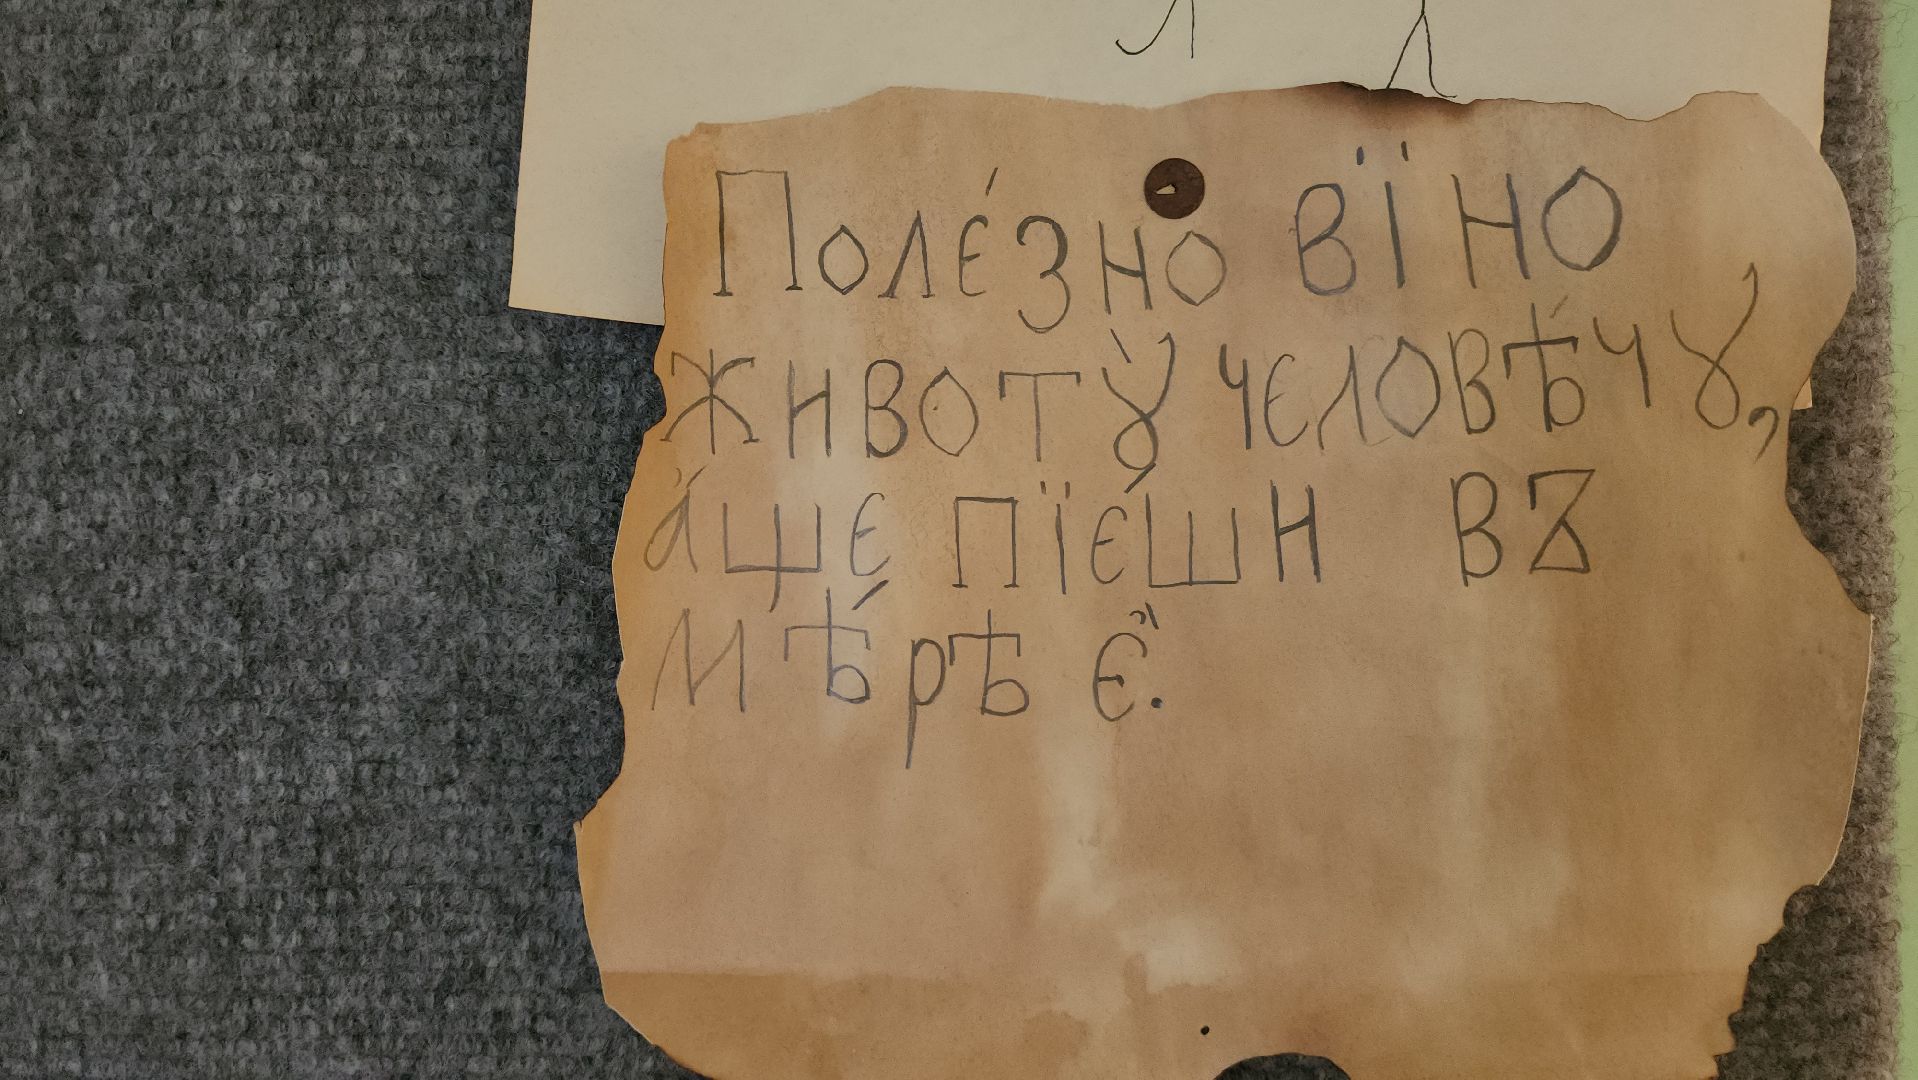 Поле́зно вїно
животꙋ̀ человѣ́чꙋ,
а҆́ще пїе́ши въ
мѣ́рѣ є҆̀.